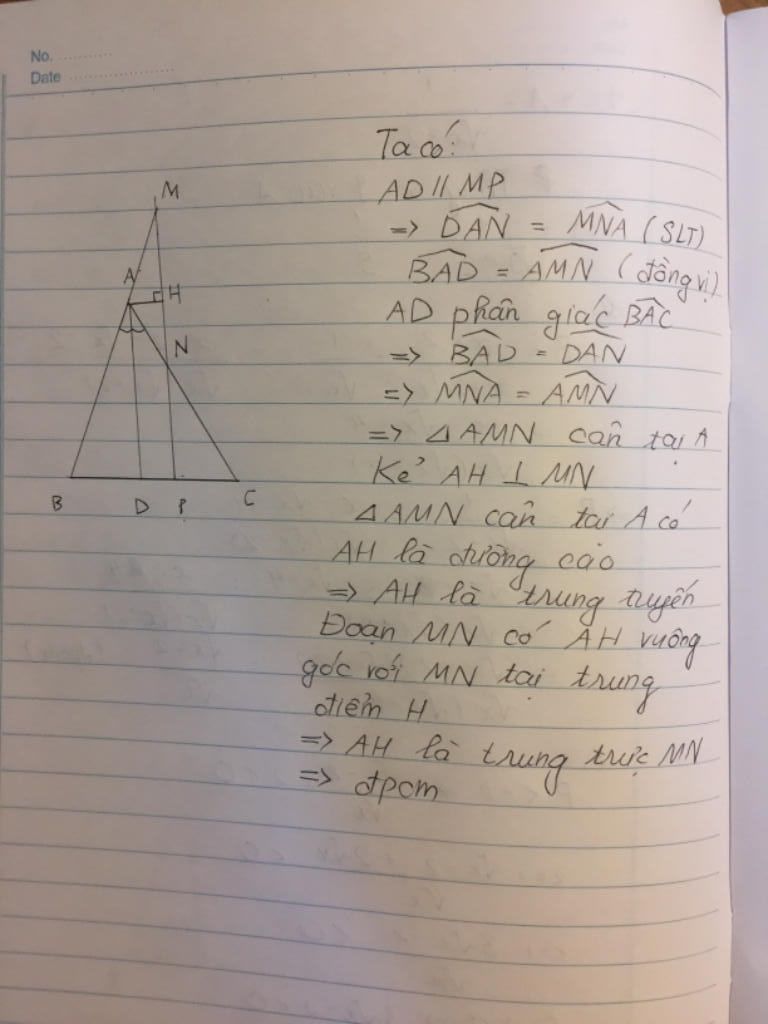 No.
Date
Ta có:
AD // MP
=> DAN = MNA (SLT)
BAD = AMN (đồng vị)
AD phân giác BAC
=> BAD = DAN
=> MNA = AMN
=> △AMN cân tại A
Kẻ AH ⊥ MN
△AMN cân tại A có
AH là đường cao
=> AH là trung tuyến
Đoạn MN có AH vuông
góc với MN tại trung
điểm H
=> AH là trung trực MN
=> đpcm
M
A
H
N
B D P C